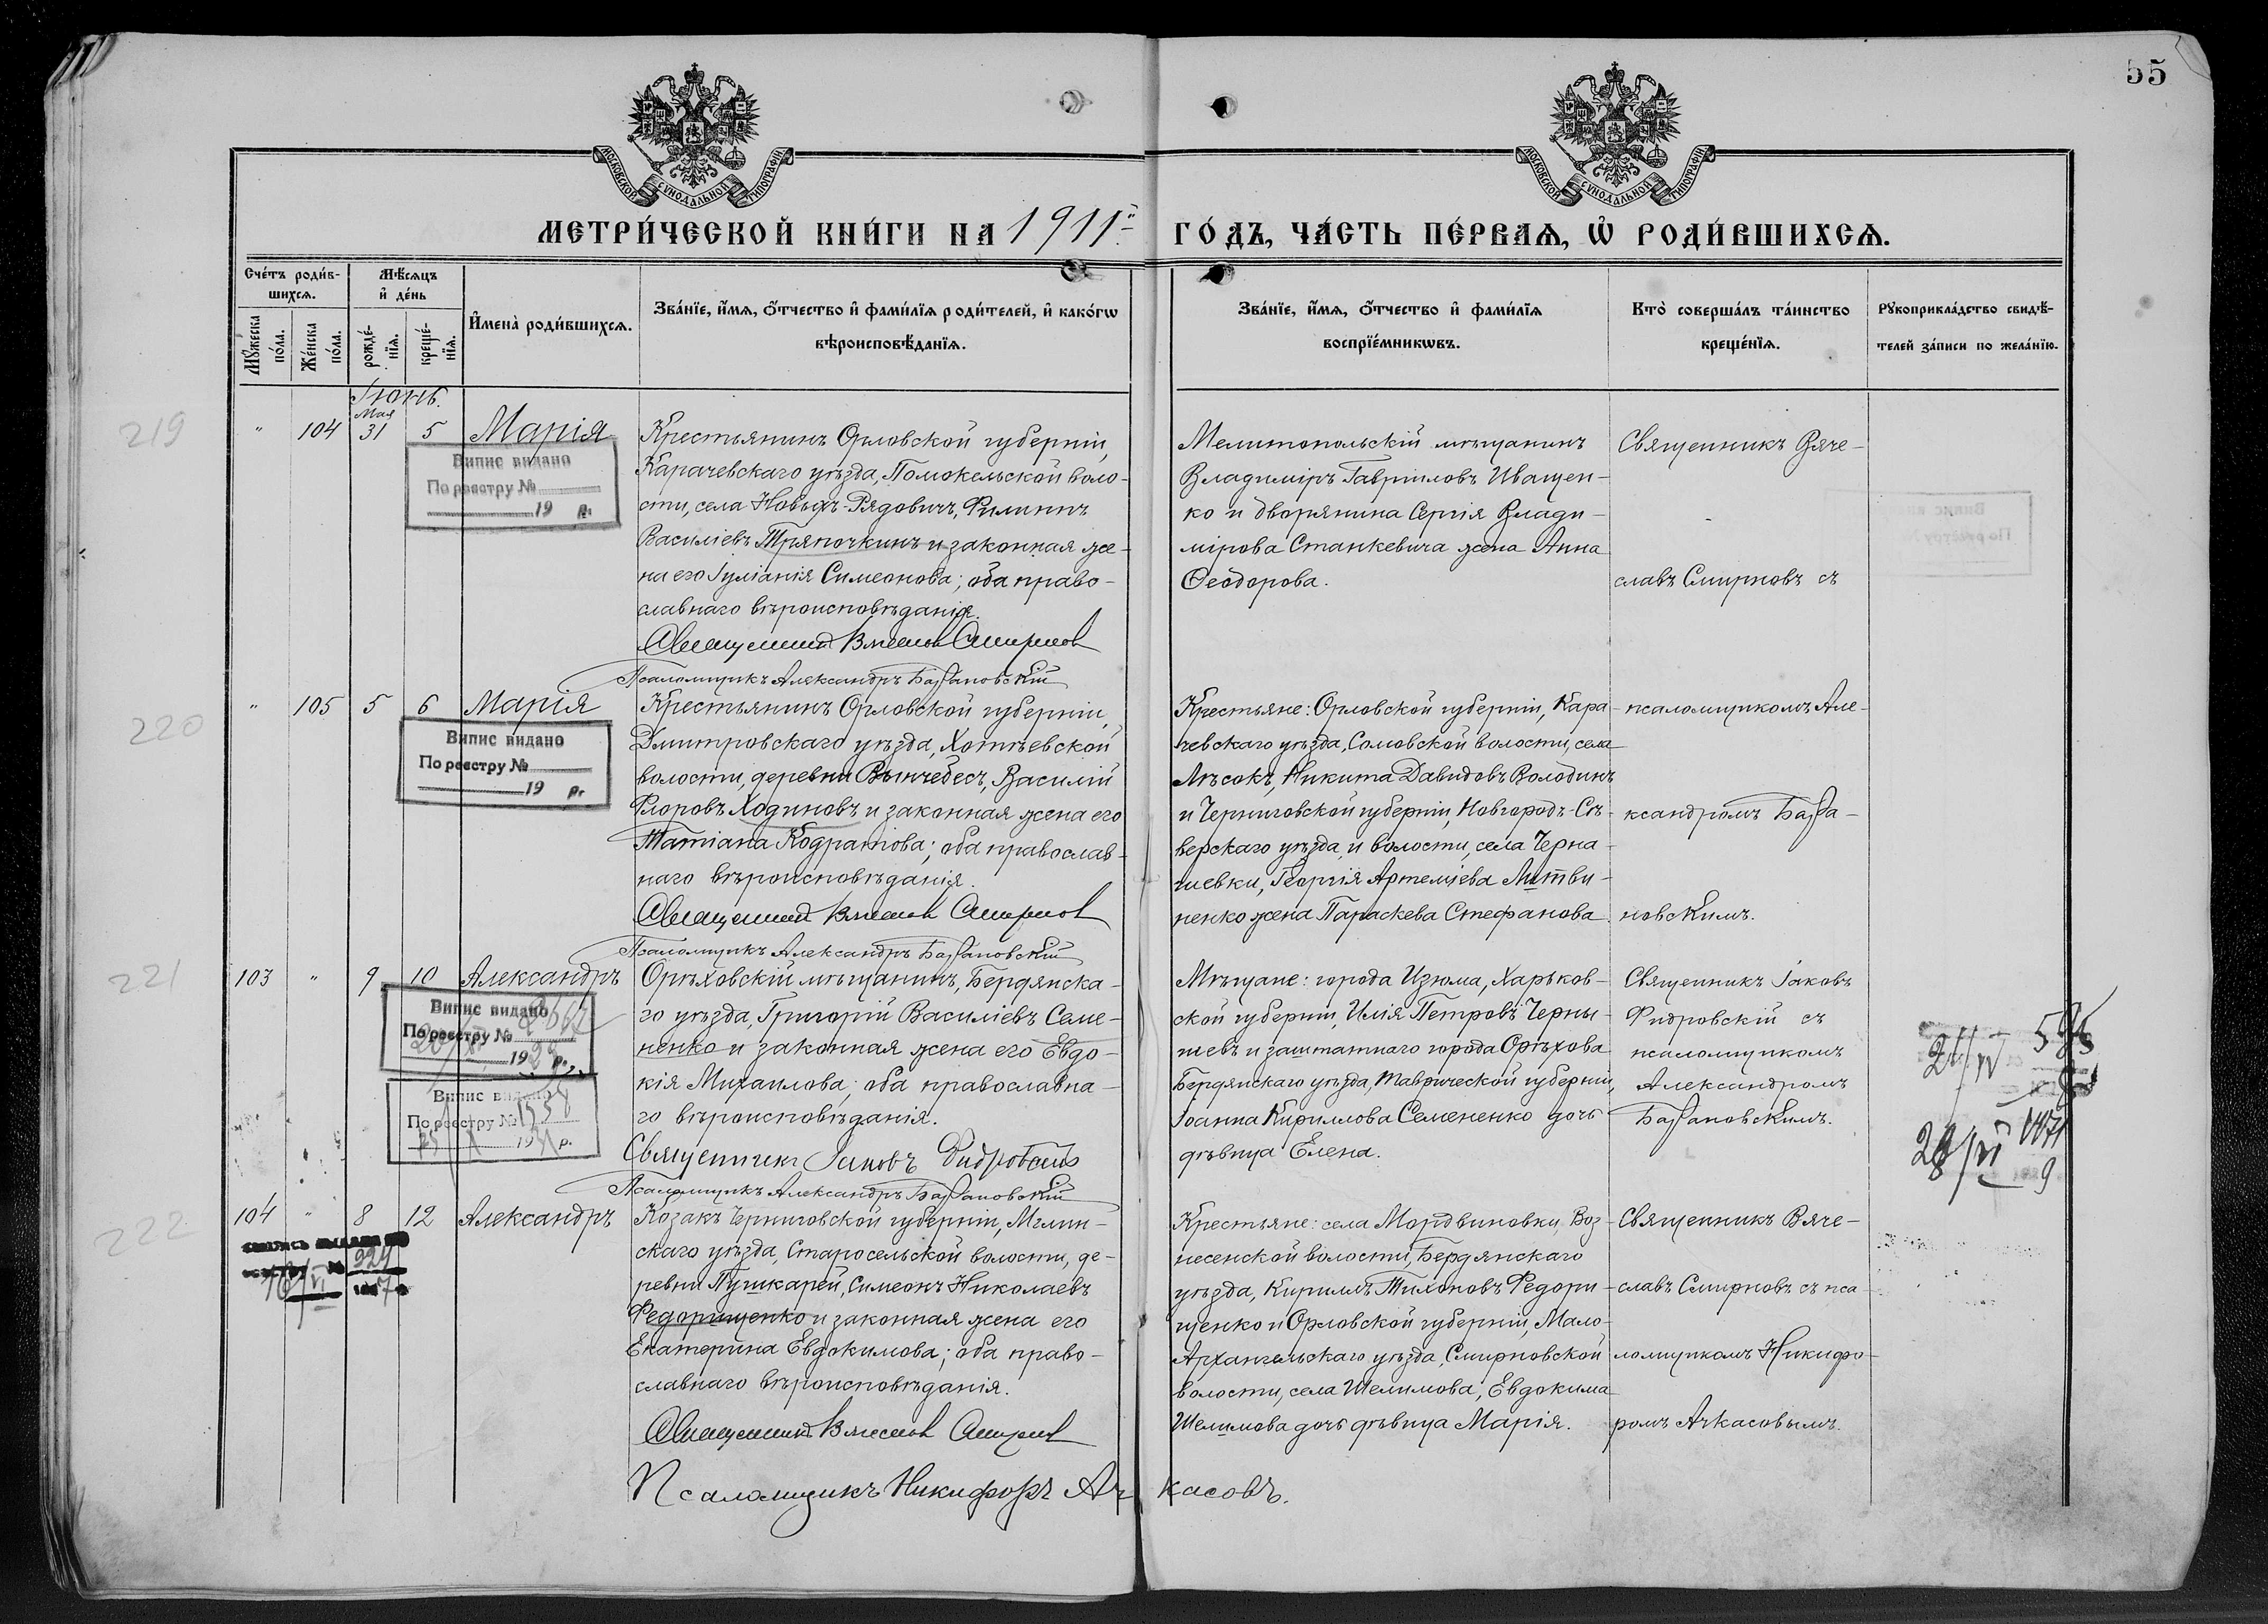 55
МОСКОВСКОЙ СУНОДАЛЬНОЙ ТИПОГРАФІИ
МОСКОВСКОЙ СУНОДАЛЬНОЙ ТИПОГРАФІИ
МЕТРИ́ЧЕСКОЙ КНИ́ГИ НА 1911й
ГО́ДЪ, ЧА́СТЬ ПЕ́РВАѦ, Ѡ РОДИ́ВШИХСѦ.
Сче́тъ роди́в-
шихсѧ.
Мѣ́сѧцъ
и҆ де́нь
Мꙋ́жеска
по́ла.
Же́нска
по́ла.
рожде́-
нїѧ.
креще́-
нїѧ.
И҆мена̀ роди́вшихсѧ.
Зва́нїе, и҆́мѧ, ѻ҆́тчество и҆ фами́лїѧ роди́телей, и҆ како́гѡ
вѣроисповѣ́данїѧ.
Зва́нїе, и҆́мѧ, ѻ҆́тчество и҆ фами́лїѧ
воспрїе́мникѡвъ.
Кто̀ соверша́лъ та́инство
креще́нїѧ.
Рꙋкоприкла́дство свидѣ́-
телей за́писи по жела́нїю.
Іюнь.
Мая
219
" 104 31 5 Марія
Випис видано
По реєстру №
19 р.
Крестьянинъ Орловской губерніи,
Карачевскаго уѣзда, воло-
сти, села Новыхъ-Рядовичъ, Филиппъ
Василіевъ Тряпочкинъ и законная же-
на его Іуліанія Симеонова; оба право-
славнаго вѣроисповѣданія.
Священникъ Вячеслав Смирнов
Псаломщикъ Александръ Барановскій
Мелитопольскій мѣщанинъ
Владиміръ Гавріиловъ Иващен-
ко и дворянина Сергія Влади-
мірова Станкевича жена Анна
Ѳеодорова.
Священникъ Вяче-
славъ Смирновъ съ
220
" 105 5 6 Марія
Випис видано
По реєстру №
19 р.
Крестьянинъ Орловской губерніи,
Дмитровскаго уѣзда, Хотѣевской
волости, деревни Василій
Флоровъ Ходиновъ и законная жена его
Татіана Кодратова; оба православ-
наго вѣроисповѣданія.
Священник Вячеслав Смирнов
Псаломщикъ Александръ Барановскій
Крестьяне: Орловской губерніи, Кара-
чевскаго уѣзда, Сомовской волости, села
Лѣсокъ, Никита Давидовъ Володинъ
и Черниговской губерніи, Новгородъ-Сѣ-
верскаго уѣзда и волости, села Черна-
чиевки, Георгія Артеміева Литви-
ненко жена Параскева Стефанова
псаломщикомъ Але-
ксандромъ Бара-
новскимъ.
221
103 " 9 10 Александръ
Випис видано
По реєстру №
19 р.
Випис видано
По реєстру № 1538
1931 р.
Орѣховскій мѣщанинъ, Бердянска-
го уѣзда, Григорій Василіевъ Семе-
ненко и законная жена его Евдо-
кія Михаилова; оба православна-
го вѣроисповѣданія.
Священникъ Іаковъ Фидровскій
Псаломщикъ Александръ Барановскій
Мѣщане: города Изюма, Харьков-
ской губерніи, Илія Петровъ Черны-
шевъ и заштатнаго города Орѣхова
Бердянскаго уѣзда, Таврической губерніи,
Іоанна Кириллова Семененко дочь
дѣвица Елена.
Священникъ Іаковъ
Фидровскій съ
псаломщикомъ
Александромъ
Барановскимъ.
222
104 " 8 12 Александръ
Козакъ Черниговской губерніи, Мглин-
скаго уѣзда, Старосельской волости, де-
ревни Пушкарей, Симеонъ Николаевъ
Федорищенко и законная жена его
Екатерина Евдокимова; оба право-
славнаго вѣроисповѣданія.
Священник Вячеслав Смирнов
Псаломщикъ Никифоръ Ач касовъ.
Крестьяне: села Мордвиновки, Воз-
несенской волости, Бердянскаго
уѣзда, Кириллъ Тихоновъ Федори-
щенко и Орловской губерніи, Мало-
Архангельскаго уѣзда, Смирновской
волости, села Шелимова, Евдокима
Шелимова дочь дѣвица Марія.
Священникъ Вяче-
славъ Смирновъ съ пса-
ломщикомъ Никифо-
ромъ Ачкасовымъ.